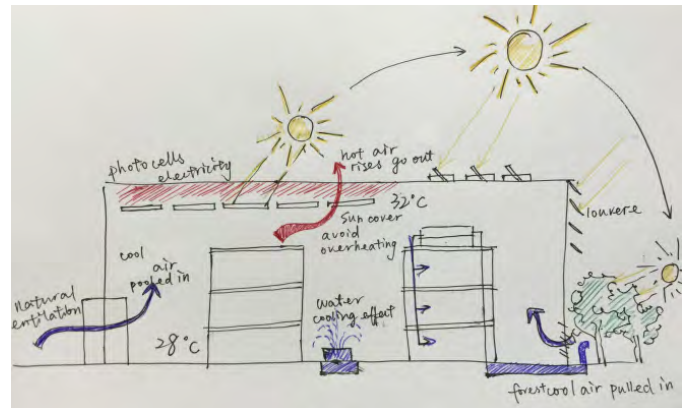 photocells
electricity
hot air
rises go out
32°C
sun cover
avoid
overheating
louvere
cool
air
pooled in
natural
entilation
28°C
water
cooling effect
forest cool air pulled in